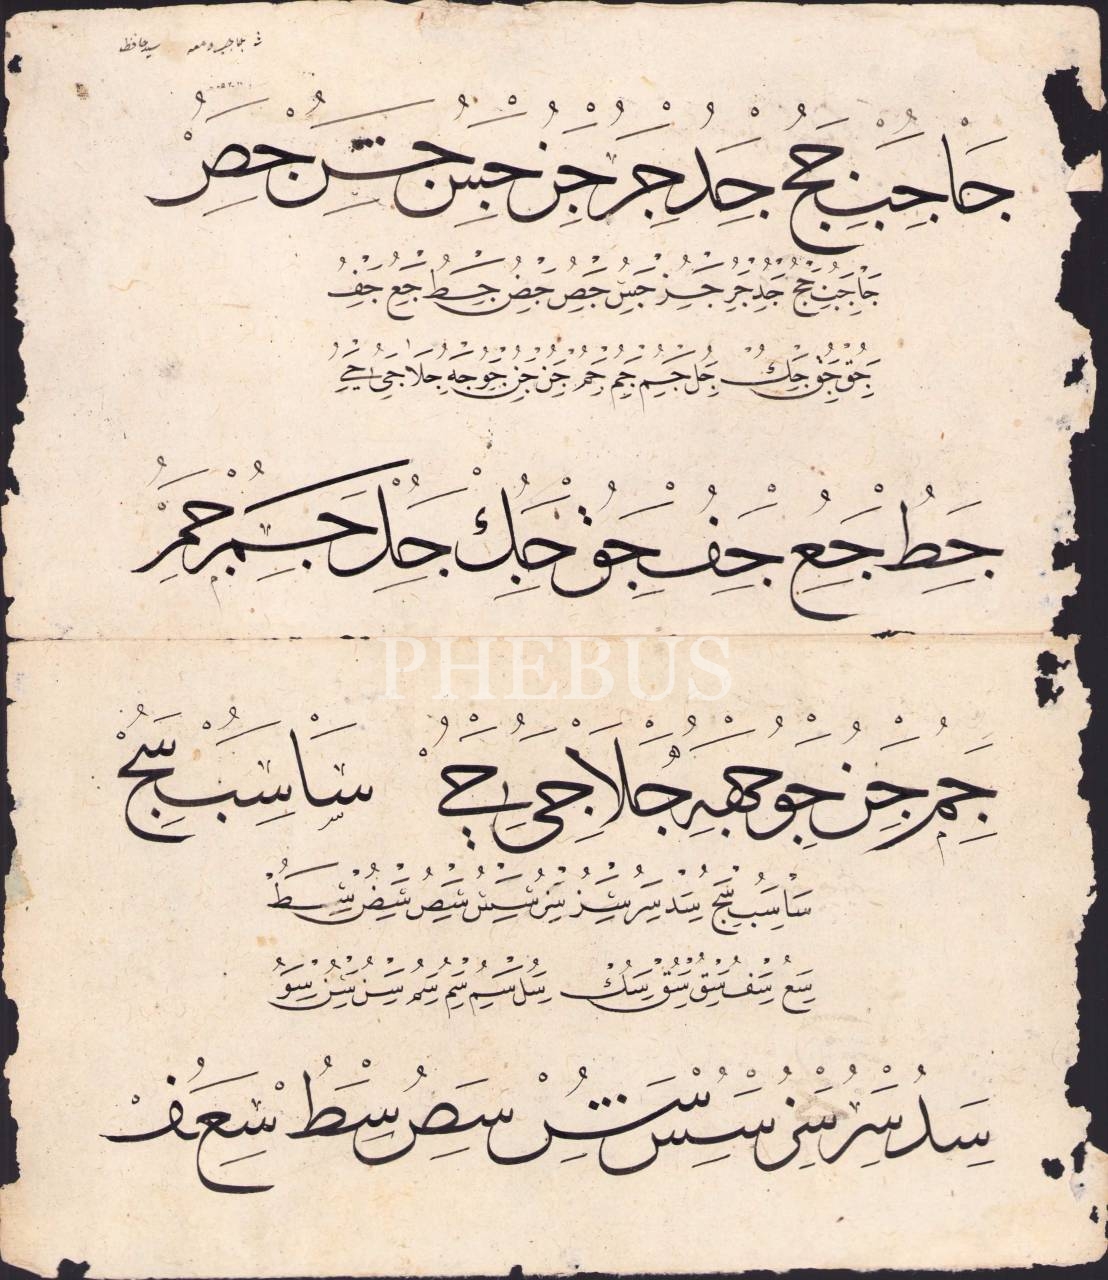 جا جب جج جد جر جز جس جش جص
جا جب جج جد جر جز جس جص جض جط جع جف
جق جق جك جل جم جم جمر جن جن جو جه جلا جى جے
جط جع جف جق جك جل جم جمر
PHEBUS
جم جن جو جهه جلا جى جے سا سب سج
سا سب سج سد سر سز سس سص سض سط
سع سف سق سق سك سل سم سم سمر سن سن سو
سد سر سز سس سش سص سط سع سف